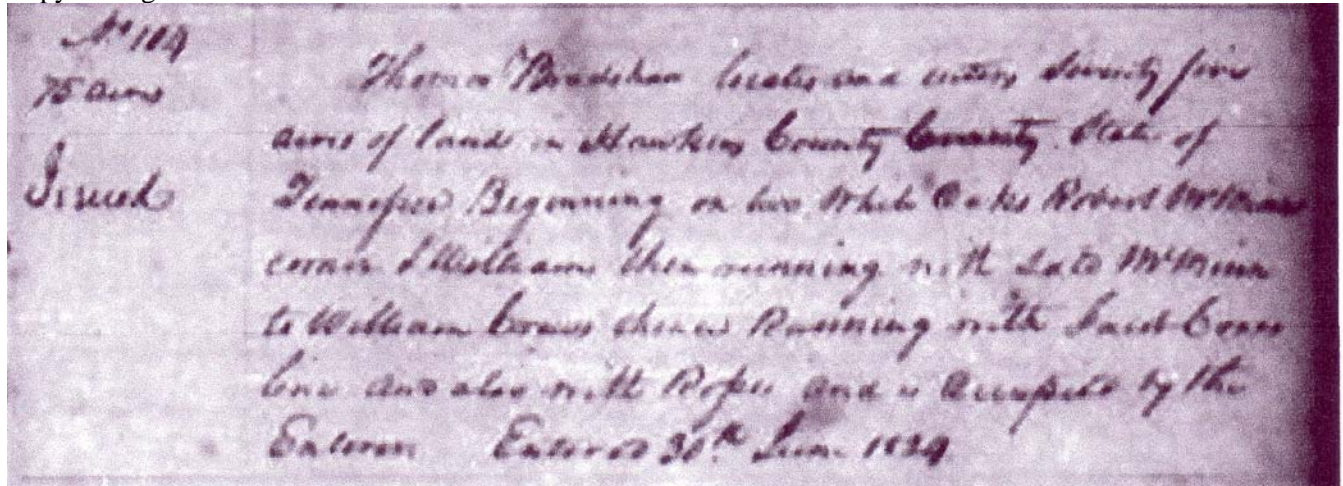 No 104
75 acres
Issued
Thomas Bradshaw locates and enters Seventy five
acres of land in Hawkins County County State of
Tennessee Beginning on two White Oaks Robert McMinn
corner & Williams then running with Said McMinn
to William thence Running with Said
line and also with and is Occupied by the
Enterer Entered 30th June 1824